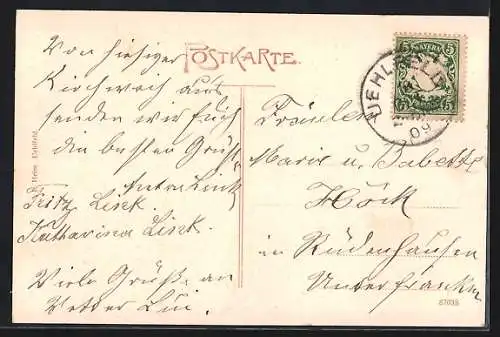 POSTKARTE.
Von hiesiger
Kirchweih aus
senden wir Euch
die besten Grüße
Fritz Lisk.
Katharina Lisk.
Viele Grüße an
Vetter
Fräulein
Marie u. Babette
Höck
in Rüdenhausen
Unterfranken
BAYERN
5 5
UEHLFELD
09
57035